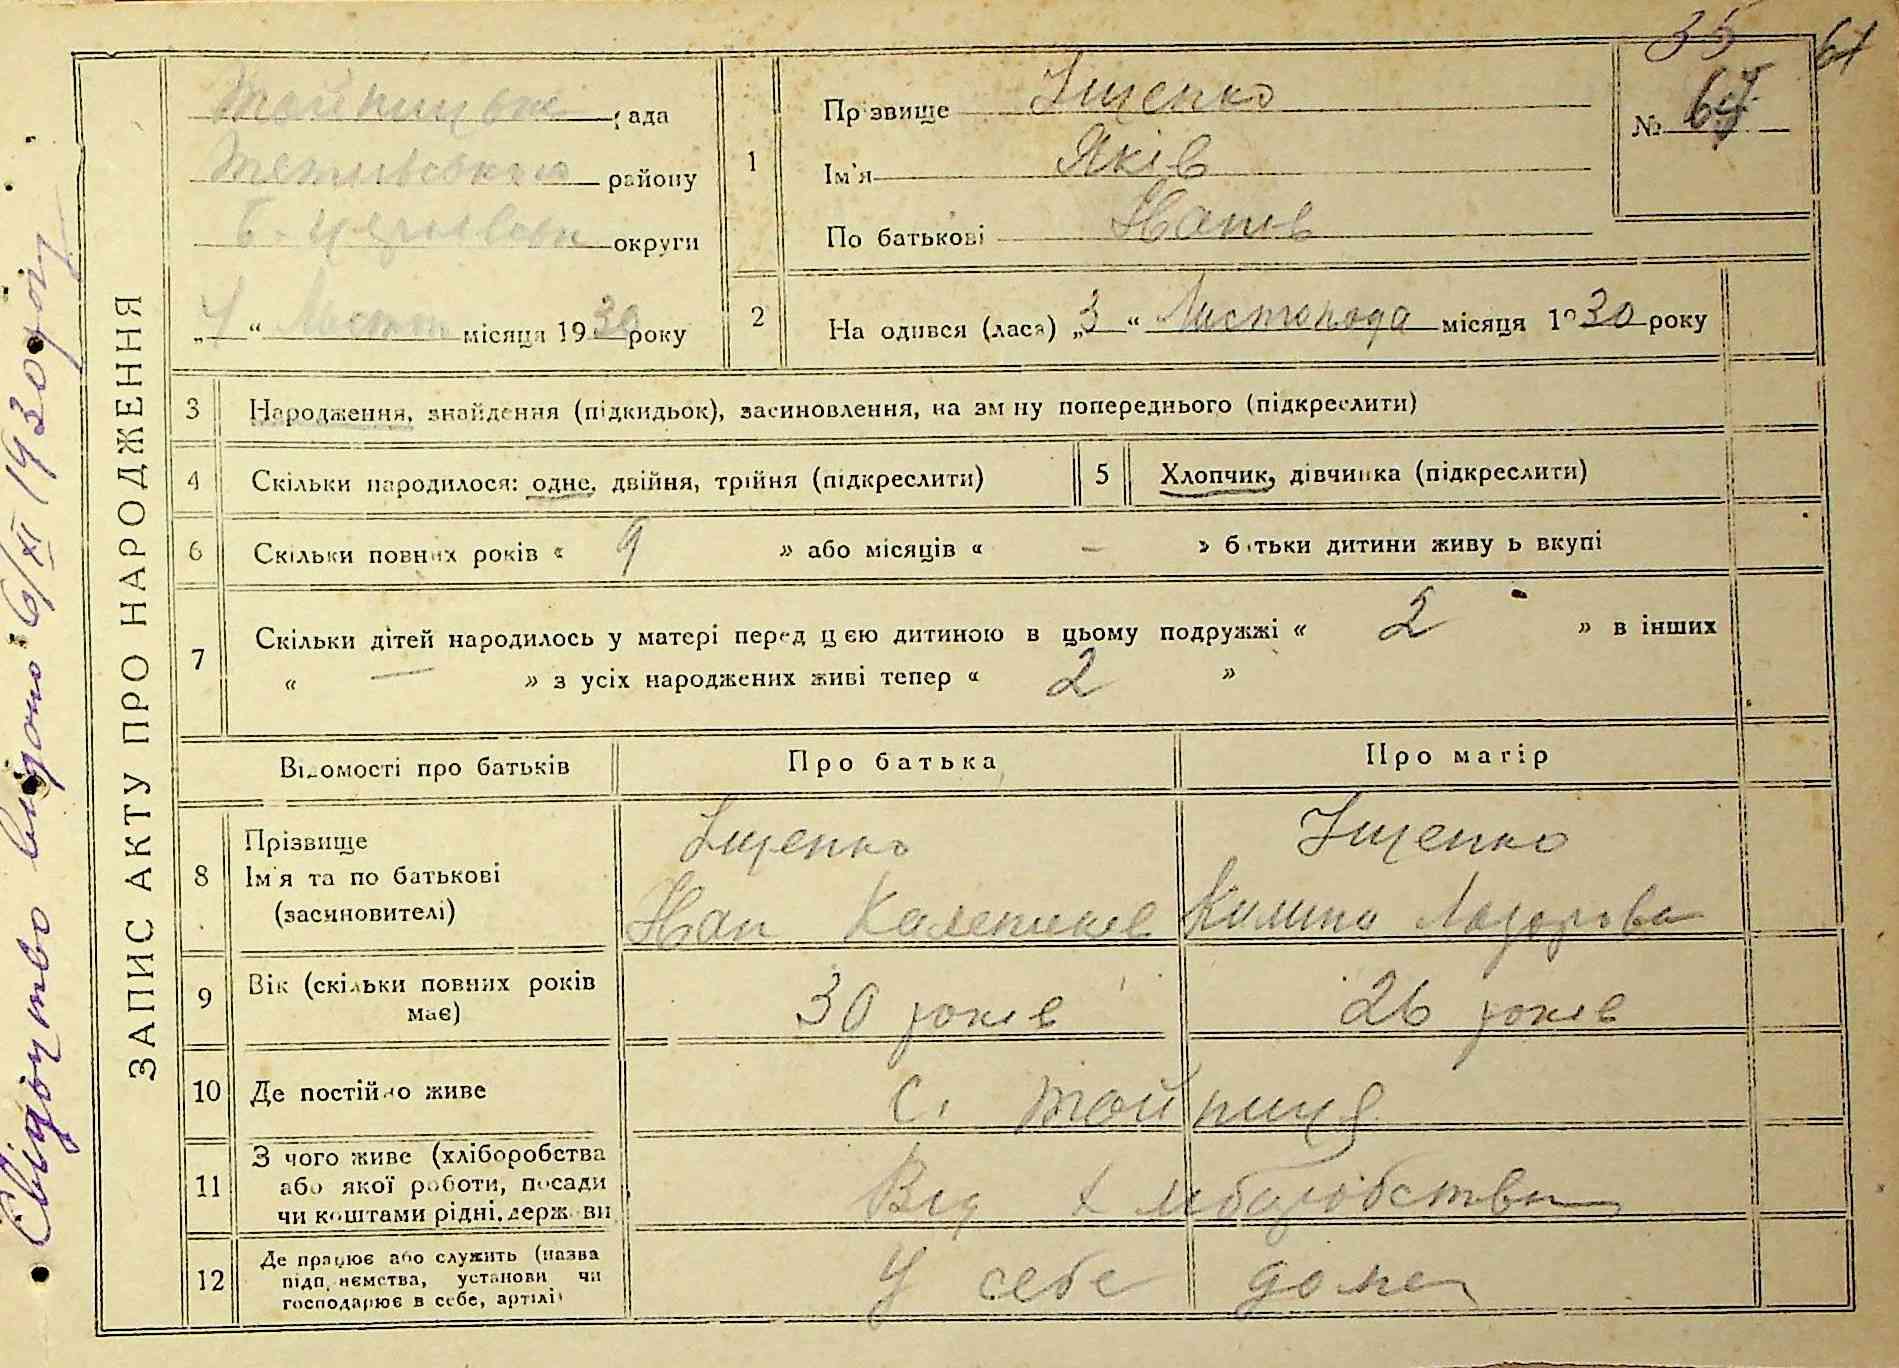 35 61
Свідоцтво видано 6/XI 1930 року
ЗАПИС АКТУ ПРО НАРОДЖЕННЯ
Тайницька рада
Тетіївського району
Б-Церківсько округи
„4“ Листоп місяця 1930 року
1
Прізвище Іщенко
Ім'я Яків
По батькові Нанів
№ 67
2
На одився (лася) „3“ Листопада місяця 1930 року
3 Народження, знайдення (підкидьок), засиновлення, на зміну попереднього (підкреслити)
4 Скільки народилося: одне, двійня, трійня (підкреслити)
5 Хлопчик, дівчинка (підкреслити)
6 Скільки повних років « 9 » або місяців « — » батьки дитини живуть вкупі
7 Скільки дітей народилось у матері перед цією дитиною в цьому подружжі « 2 » в інших
« — » з усіх народжених живі тепер « 2 »
Відомості про батьків Про батька Про матір
8 Прізвище
Ім'я та по батькові
(засиновителі)
Іщенко
Нап
Іщенко
Килина Лазорова
9 Вік (скільки повних років
має)
30 років 26 років
10 Де постійно живе С. Тайниця
11 З чого живе (хліборобства
або якої роботи, посади
чи коштами рідні, держави
Від хліборобства
12 Де працює або служить (назва
підприємства, установи чи
господарює в себе, артілі)
У себе дома